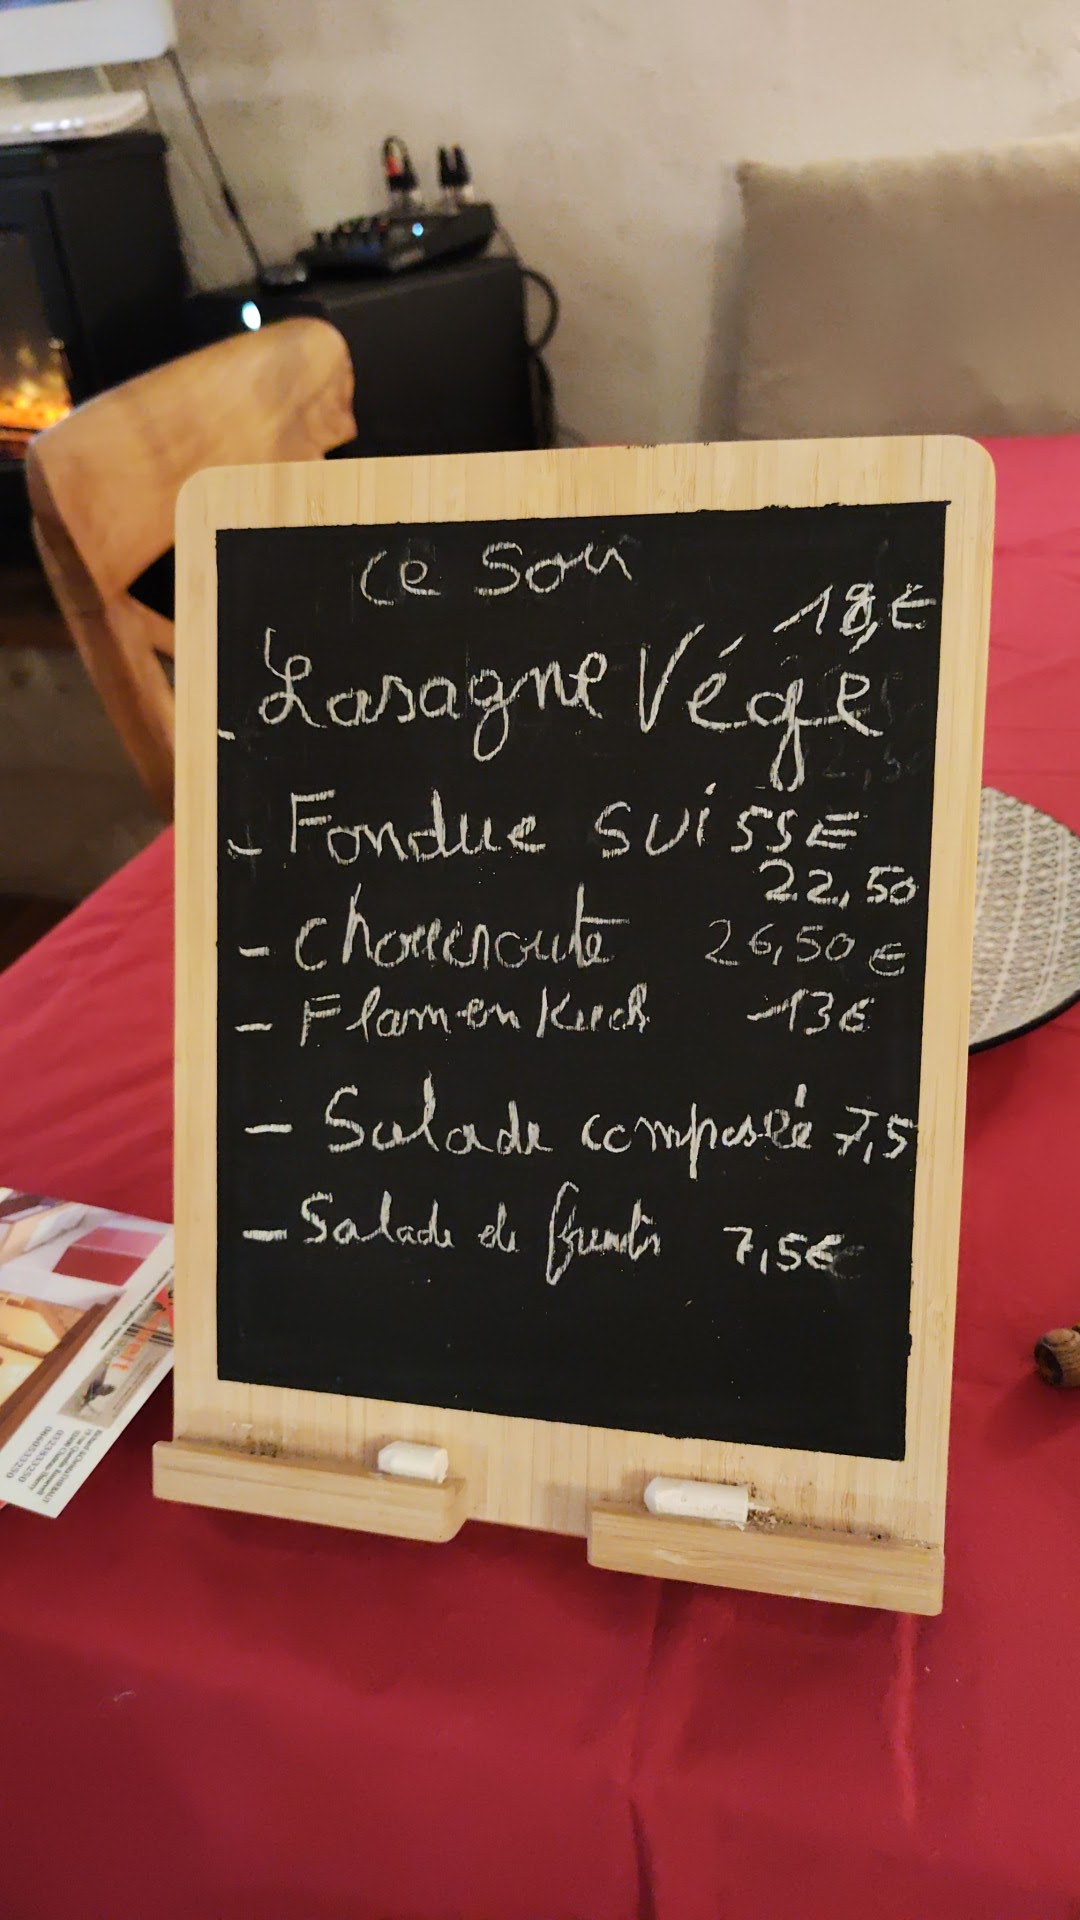 Ce Soir
18,€
- Lasagne Végé
- Fondue SuissE
22,50
- Choucroute 26,50 €
- Flamenkuch 13€
- Salade composée 7,5
- Salade de fruits 7,5€
0323933250
0660533250